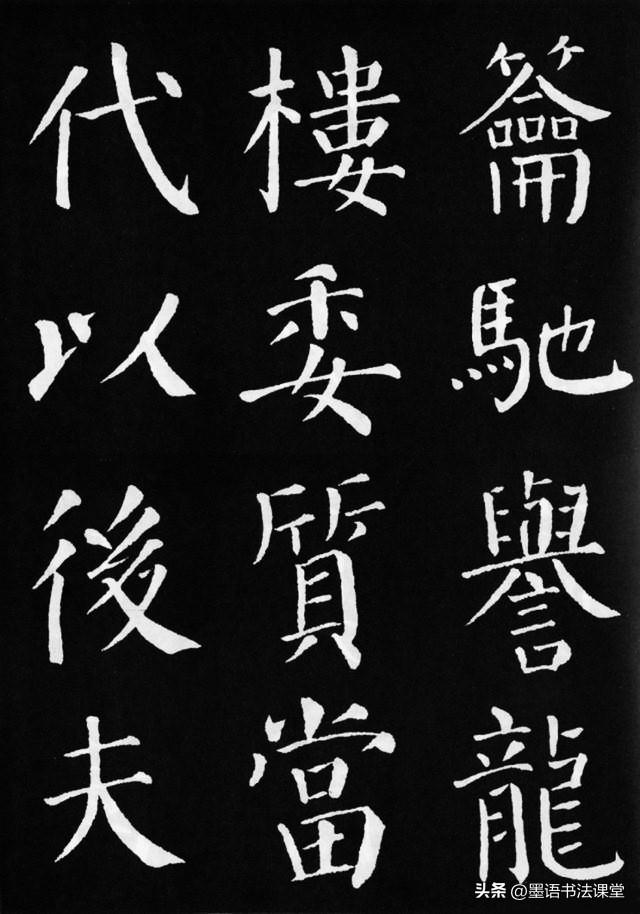 籥馳譽龍
樓委質當
代以後夫
头条 @墨语书法课堂